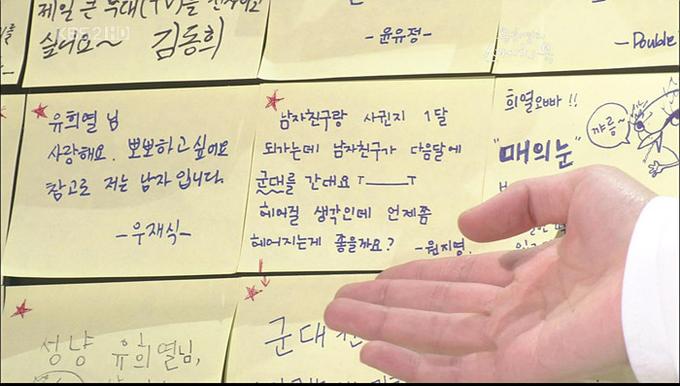 제일 큰 무대(TV)를
싶너요~ 김동희
- 윤유정 -
- Double
KBS2 HD
유희열 님
사랑해요. 뽀뽀하고 싶어요
참고로 저는 남자 입니다.
- 우재식 -
남자친구랑 사귄지 1달
되가는데 남자친구가 다음달에
군대를 간대요 T____T
헤어질 생각인데 언제쯤
헤어지는게 좋을까요? - 원지영.
희열오빠!!
"매의눈"
꺄륵~
성냥 유희열님,
군대